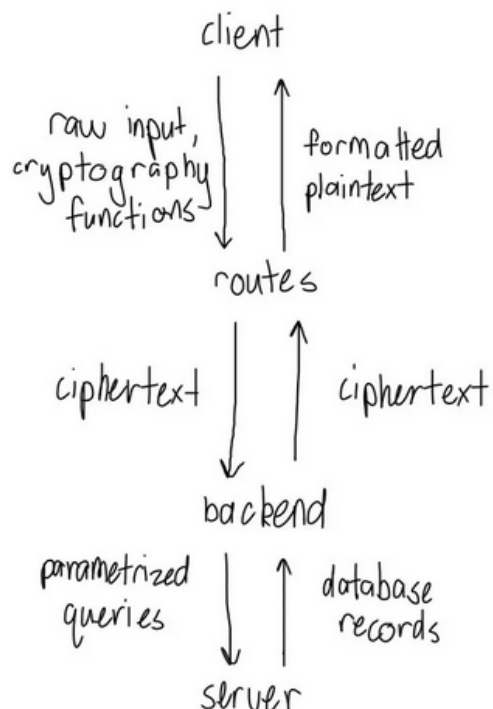 client
raw input,
cryptography
functions
formatted
plaintext
routes
ciphertext
ciphertext
backend
parametrized
queries
database
records
server